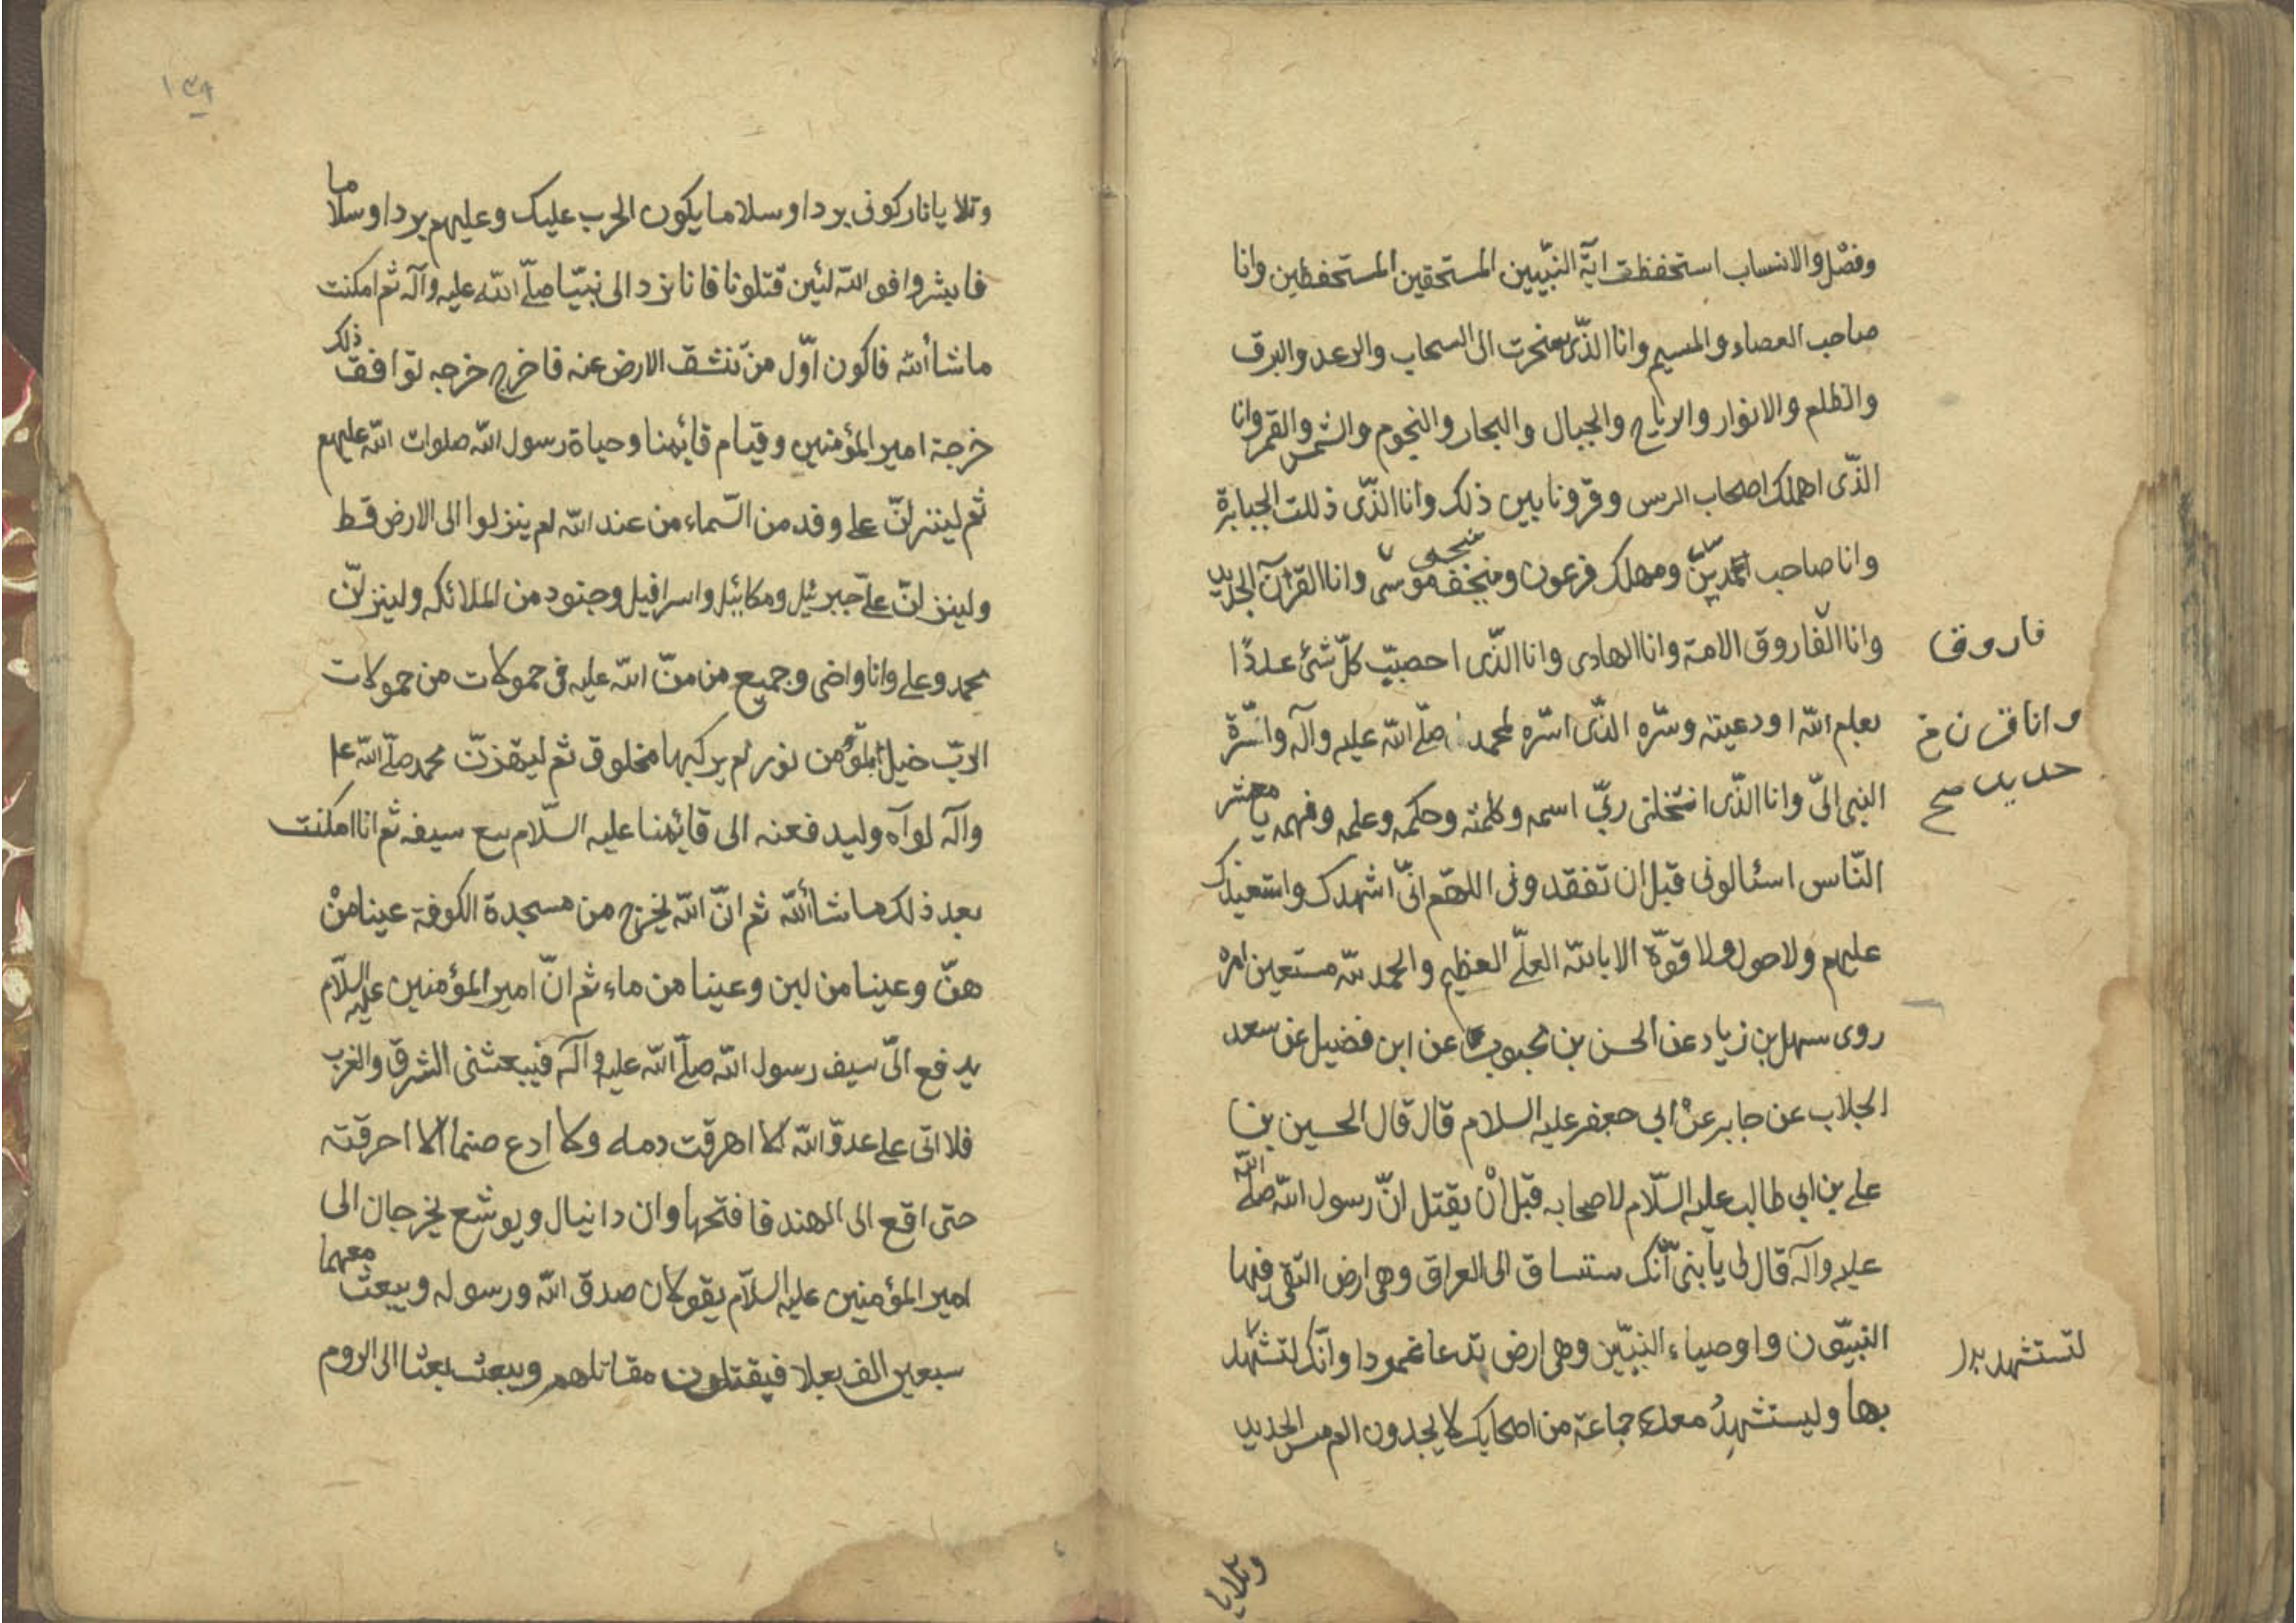 وفصل والانساب استحفظت اية النبيين المستحقين المستحفظين وانا
صاحب العصاء والمسيم وانا الذى سخرت الى السحاب والرعد والبرق
والظلم والانوار والرياح والجبال والبحار والنجوم والشمس والقمر وانا
الذى اهلك اصحاب الرس وقرونا بين ذلك وانا الذى ذللت الجبابرة
وانا صاحب مدين ومهلك فرعون ومنجى موسى وانا القرآن الحديد
وانا الفاروق الامة وانا الهادى وانا الذى احصيت كل شئ عددا
فاروق
بعلم الله اودعيته وسره الذى اسره لمحمد صلى الله عليه وآله واسرة
وانا قرن خ
حديد صح
النبى الىّ وانا الذى انتخلنى ربى اسمه وكلمته وحكمه وعلمه وفهمه يا معشر
الناس اسئالونى قبل ان تفقدونى اللهم انى اشهدك واستعيذك
عليهم ولا حول ولا قوة الا بالله العلى العظيم والحمد لله مستعين امره
روى سهل بن زياد عن الحسن بن محبوب عن ابن فضيل عن سعد
الجلاب عن جابر عن ابى جعفر عليه السلام قال قال الحسين بن
على بن ابى طالب عليه السلام لاصحابه قبل ان يقتل ان رسول الله صلى الله
عليه وآله قال لى يا بنى انك ستساق الى العراق وهى ارض التقى فيها
النبيون واوصياء النبيين وهى ارض تدعا عمودا وانك لتشهد
لتستشهد بدل
بها وليستشهد معك جماعة من اصحابك لا يجدون الم مس الحديد
وتلا يا
وتلا يا نار كونى بردا وسلاما يكون الحرب عليك وعليهم بردا وسلاما
فابشروا فو الله لئين قتلونا فانا نرد الى نبيّا صلى الله عليه وآله ثم امكنت
ما شأ الله فاكون اول من تنشق الارض عنه فاخرج خرجه توافق ذلك
خرجة امير المؤمنين وقيام قايمنا وحياة رسول الله صلوات الله عليهم
ثم لينزلن على وفد من السماء من عند الله لم ينزلوا الى الارض قط
ولينزلن على جبرئيل ومكائيل واسرافيل وجنود من الملائكه ولينزلن
محمد وعلى وانا واخى وجميع من منّ الله عليه فى حمولات من حمولات
الرب خيل ابلق من نور لم يركبها مخلوق ثم ليهزن محمد صلى الله عل
وآله لوآه وليدفعنه الى قايمنا عليه السلام مع سيفه ثم انا امكنت
بعد ذلك ما شأ الله ثم ان الله يخرج من مسجدة الكوفة عينا من
هن وعينا من لبن وعينا من ماء ثم ان امير المؤمنين عليه السلام
يدفع الىّ سيف رسول الله صلى الله عليه وآله فيبعثنى الشرق والغرب
فلا اتى على عدو الله الا اهرقت دمه ولا ادع صنما الا احرقته
حتى اقع الى الهند فافتحها وان دانيال ويوشع يخرجان الى
امير المؤمنين عليه السلام يقولان صدق الله ورسوله ويبعث معهما
سبعين الف بعلا فيقتلون مقاتلهم ويبعث بعثا الى الروم